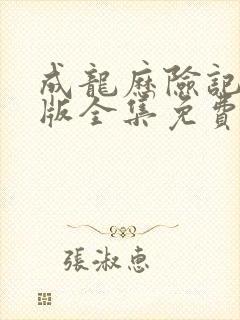 成龍歷險記
版全集免費
張淑惠